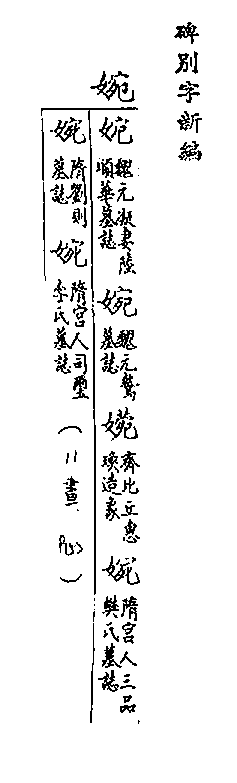 碑別字新編
婉
婉 魏元凝妻陸順華墓誌 婉 魏元鷙墓誌 婉 齊比丘惠瑍造象 婉 隋宮人三品樊氏墓誌
婉 隋劉則墓誌 婉 隋宮人司璽李氏墓誌 (11畫 P.155)